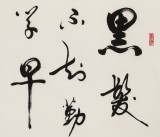 黑髮
不知勤
学早